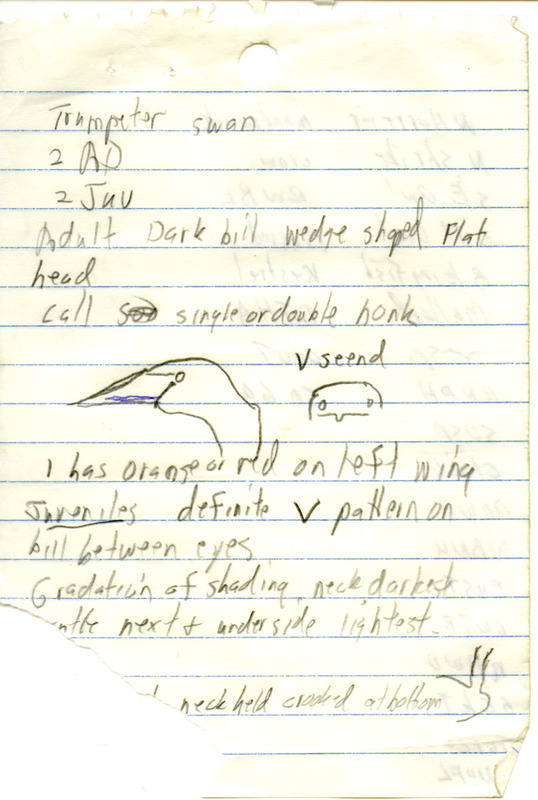 Trumpeter swan
2 AD
2 Juv
Adult Dark bill wedge shaped Flat
head
call single or double honk
V seend
1 has orange or red on left wing
Juveniles definite V pattern on
bill between eyes
Gradation of shading, neck darkest
next & underside lightest.
neck held crooked at bottom